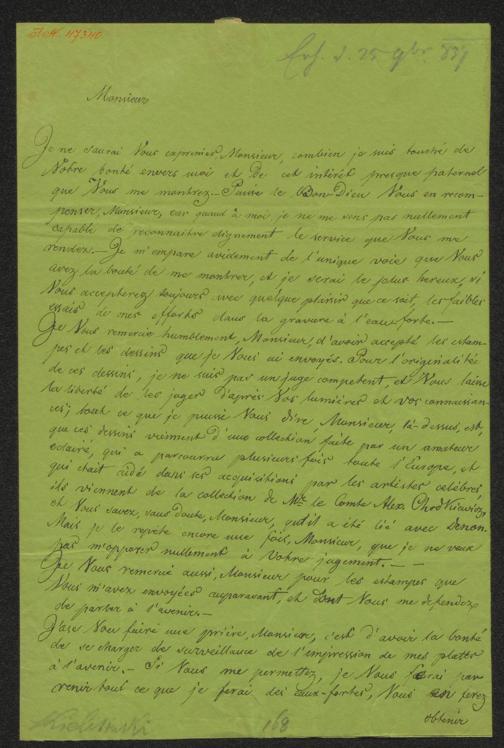 A.N. 47340
Erh. d. 25 9br. 839
Monsieur
Je ne saurai Vous exprimer, Monsieur, combien je suis touché de
Votre bonté envers moi et de cet intérêt presque paternel
que Vous me montrez.– Puisse le Bon-Dieu Vous en recom-
penser, Monsieur, car quand à moi je ne me sens pas nullement
capable de reconnaitre dignement le service que Vous me
rendez.– Je m'empare avidement de l'unique voie que Vous
avez la bonté de me montrer, et je serai le plus hereux, si
Vous accepterez toujours avec quelque plaisir que ce soit, les faibles
essais de mes efforts dans la gravure à l'eau forte.–
Je Vous remercie humblement, Monsieur, d'avoir accepté les estam-
pes et les dessins que je Vous ai envoyés. Pour l'originalité
de ces dessins, je ne suis pas un juge competent, et Vous laisse
la liberté de les juger d'après Vos lumières et vos connaissan-
ces; tout ce que je puisse Vous dire Monsieur, là-dessus, est,
que ces dessins viennent d'une collection faite par un amateur
éclairé, qui a parcouru plusieurs fois toute l'Europe, et
qui était aidé dans ses acquisitions par les artistes celèbres
ils viennent de la collection de Mr. le Comte Alex Chodkiewicz,
et Vous savez, sans doute, Monsieur, qu'il a été lié avec Denon.
Mais je le repète encore une fois, Monsieur, que je ne veux
pas m'opposer nullement à Votre jugement.–
Je Vous remercie aussi, Monsieur pour les estampes que
Vous m'avez envoyées auparavant, et dont Vous me defendez
de parler à l'avenir.–
J'ose Vous faire une prière, Monsieur, c'est d'avoir la bonté
de se charger de surveillance de l'impression de mes plattes
à l'avenir.– Si Vous me permettez, je Vous ferai par
venir tout ce que je ferai des eaux-fortes, Vous en ferez
obtenir
168